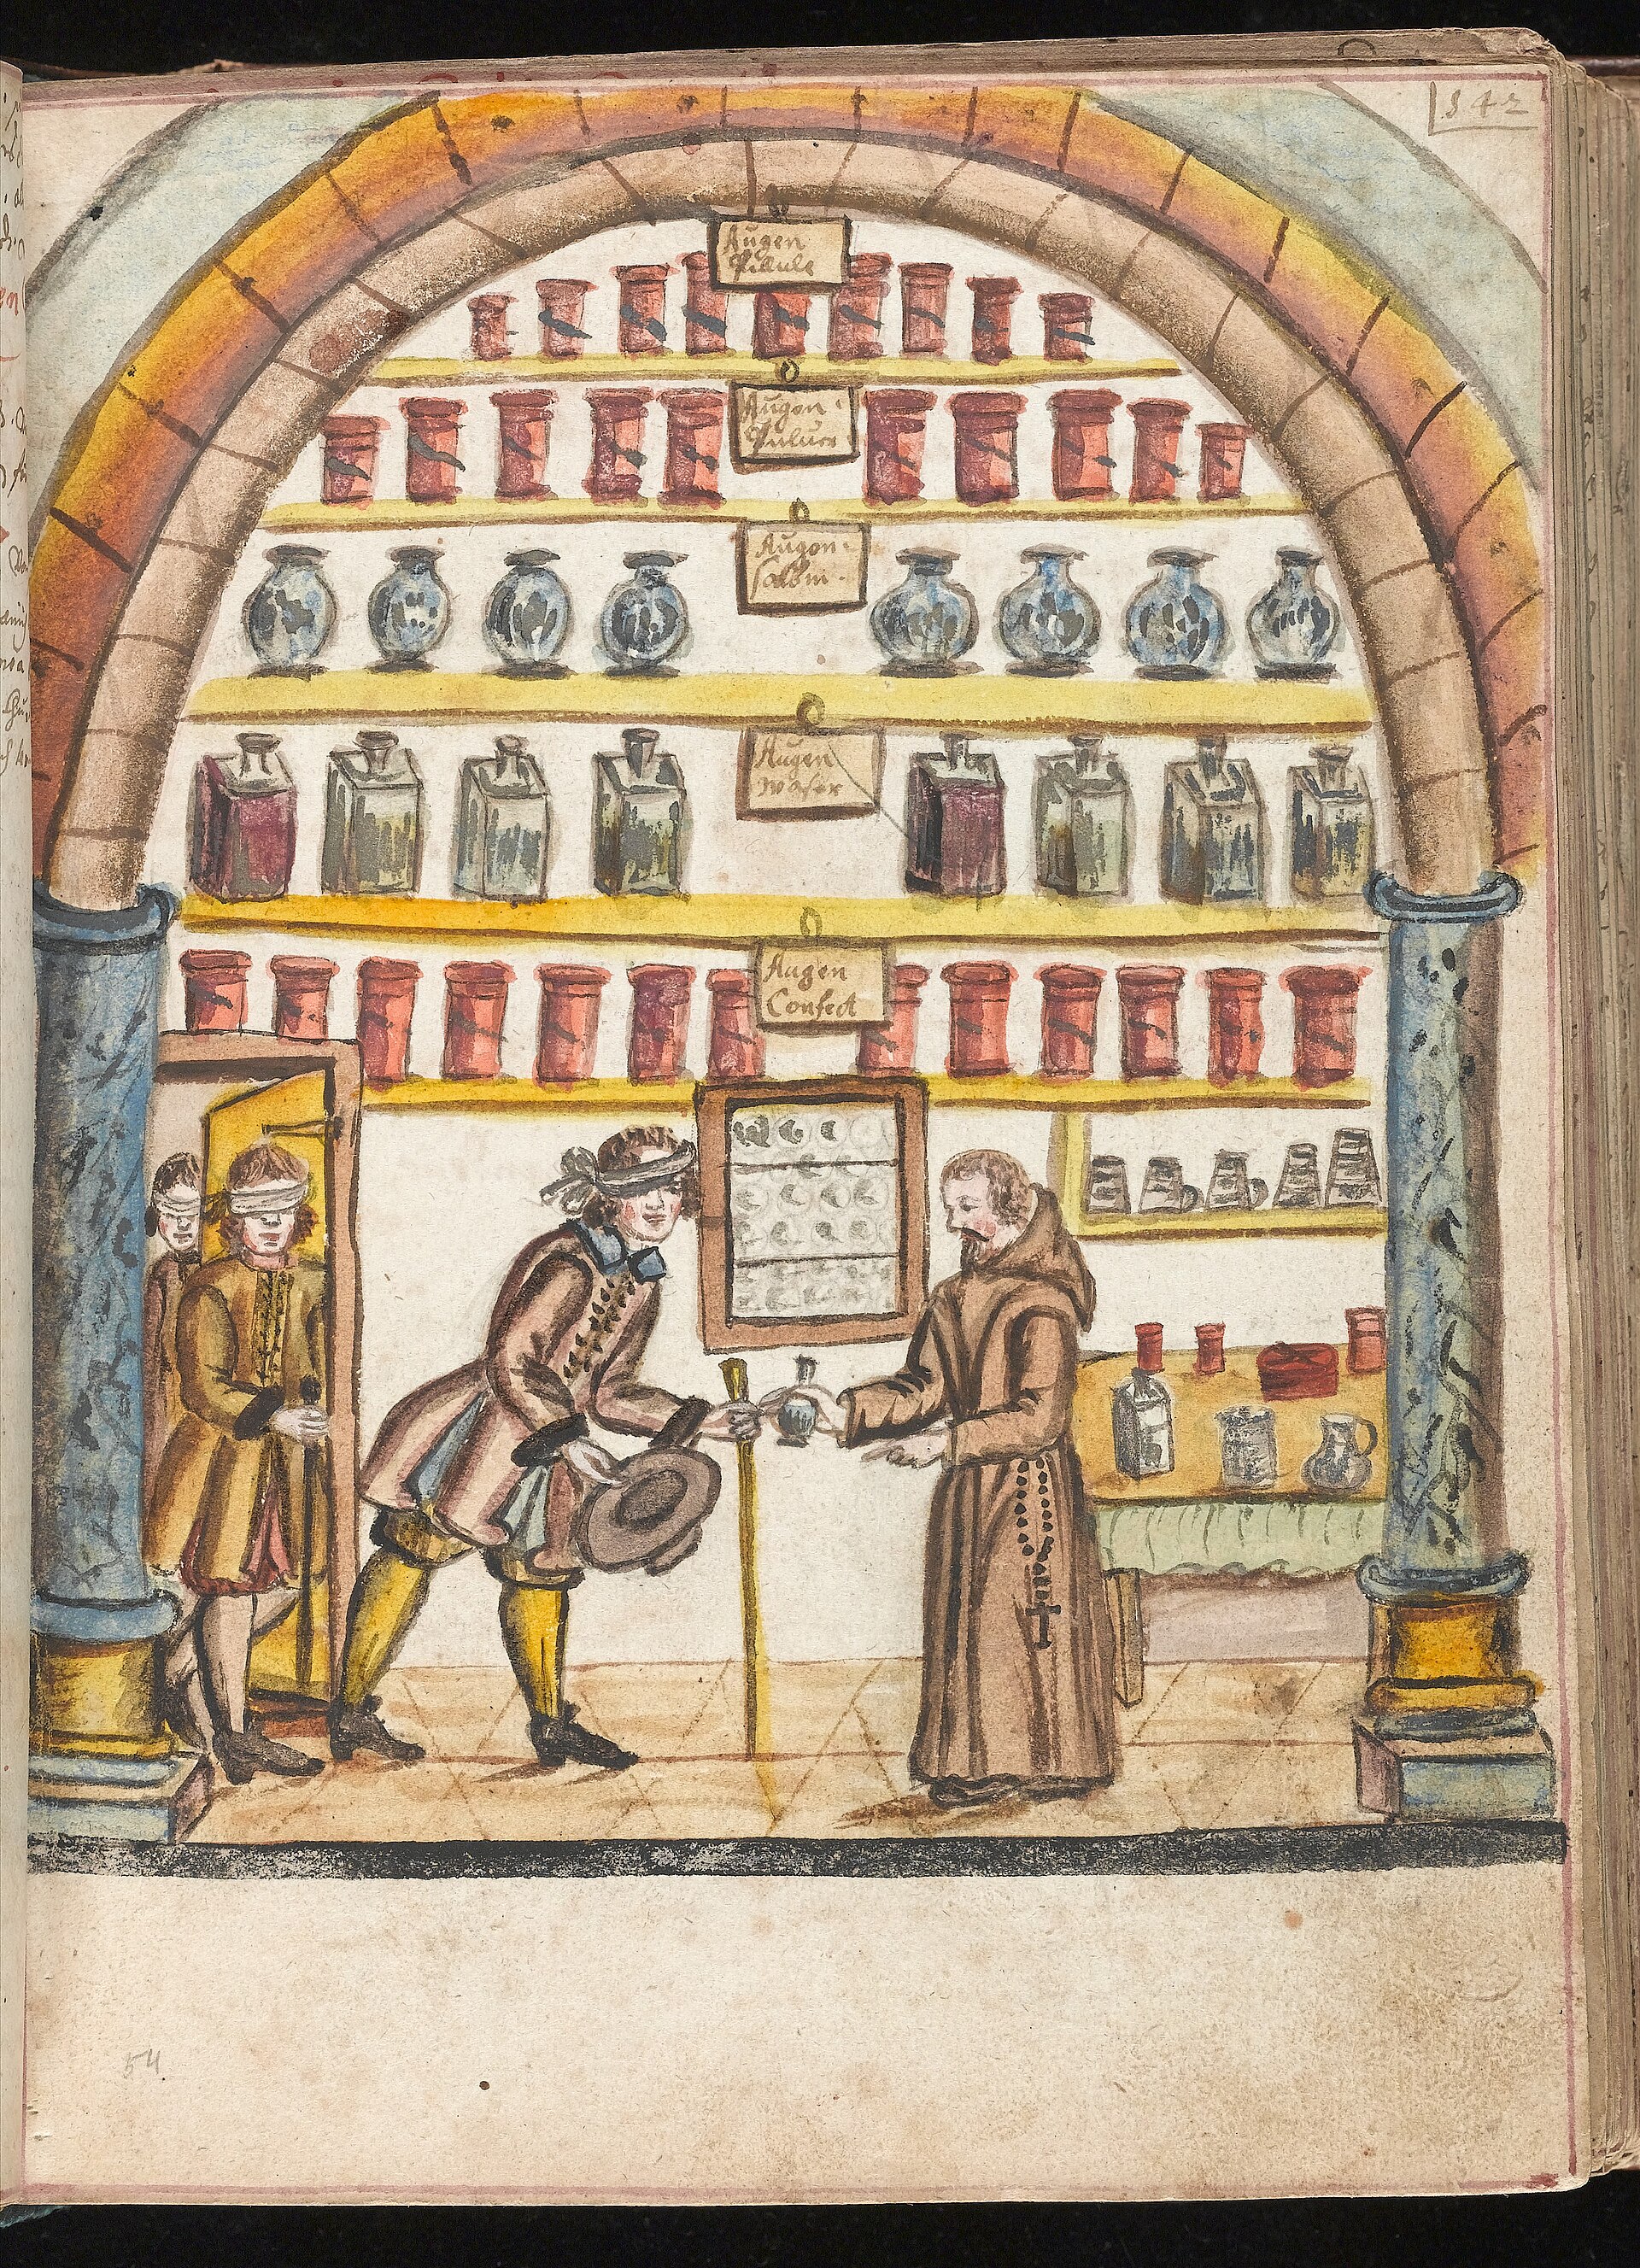 142
Augen
Pillule
Augen
Pulver
Augen
salbm
Augen
waser
Augen
Confect
54